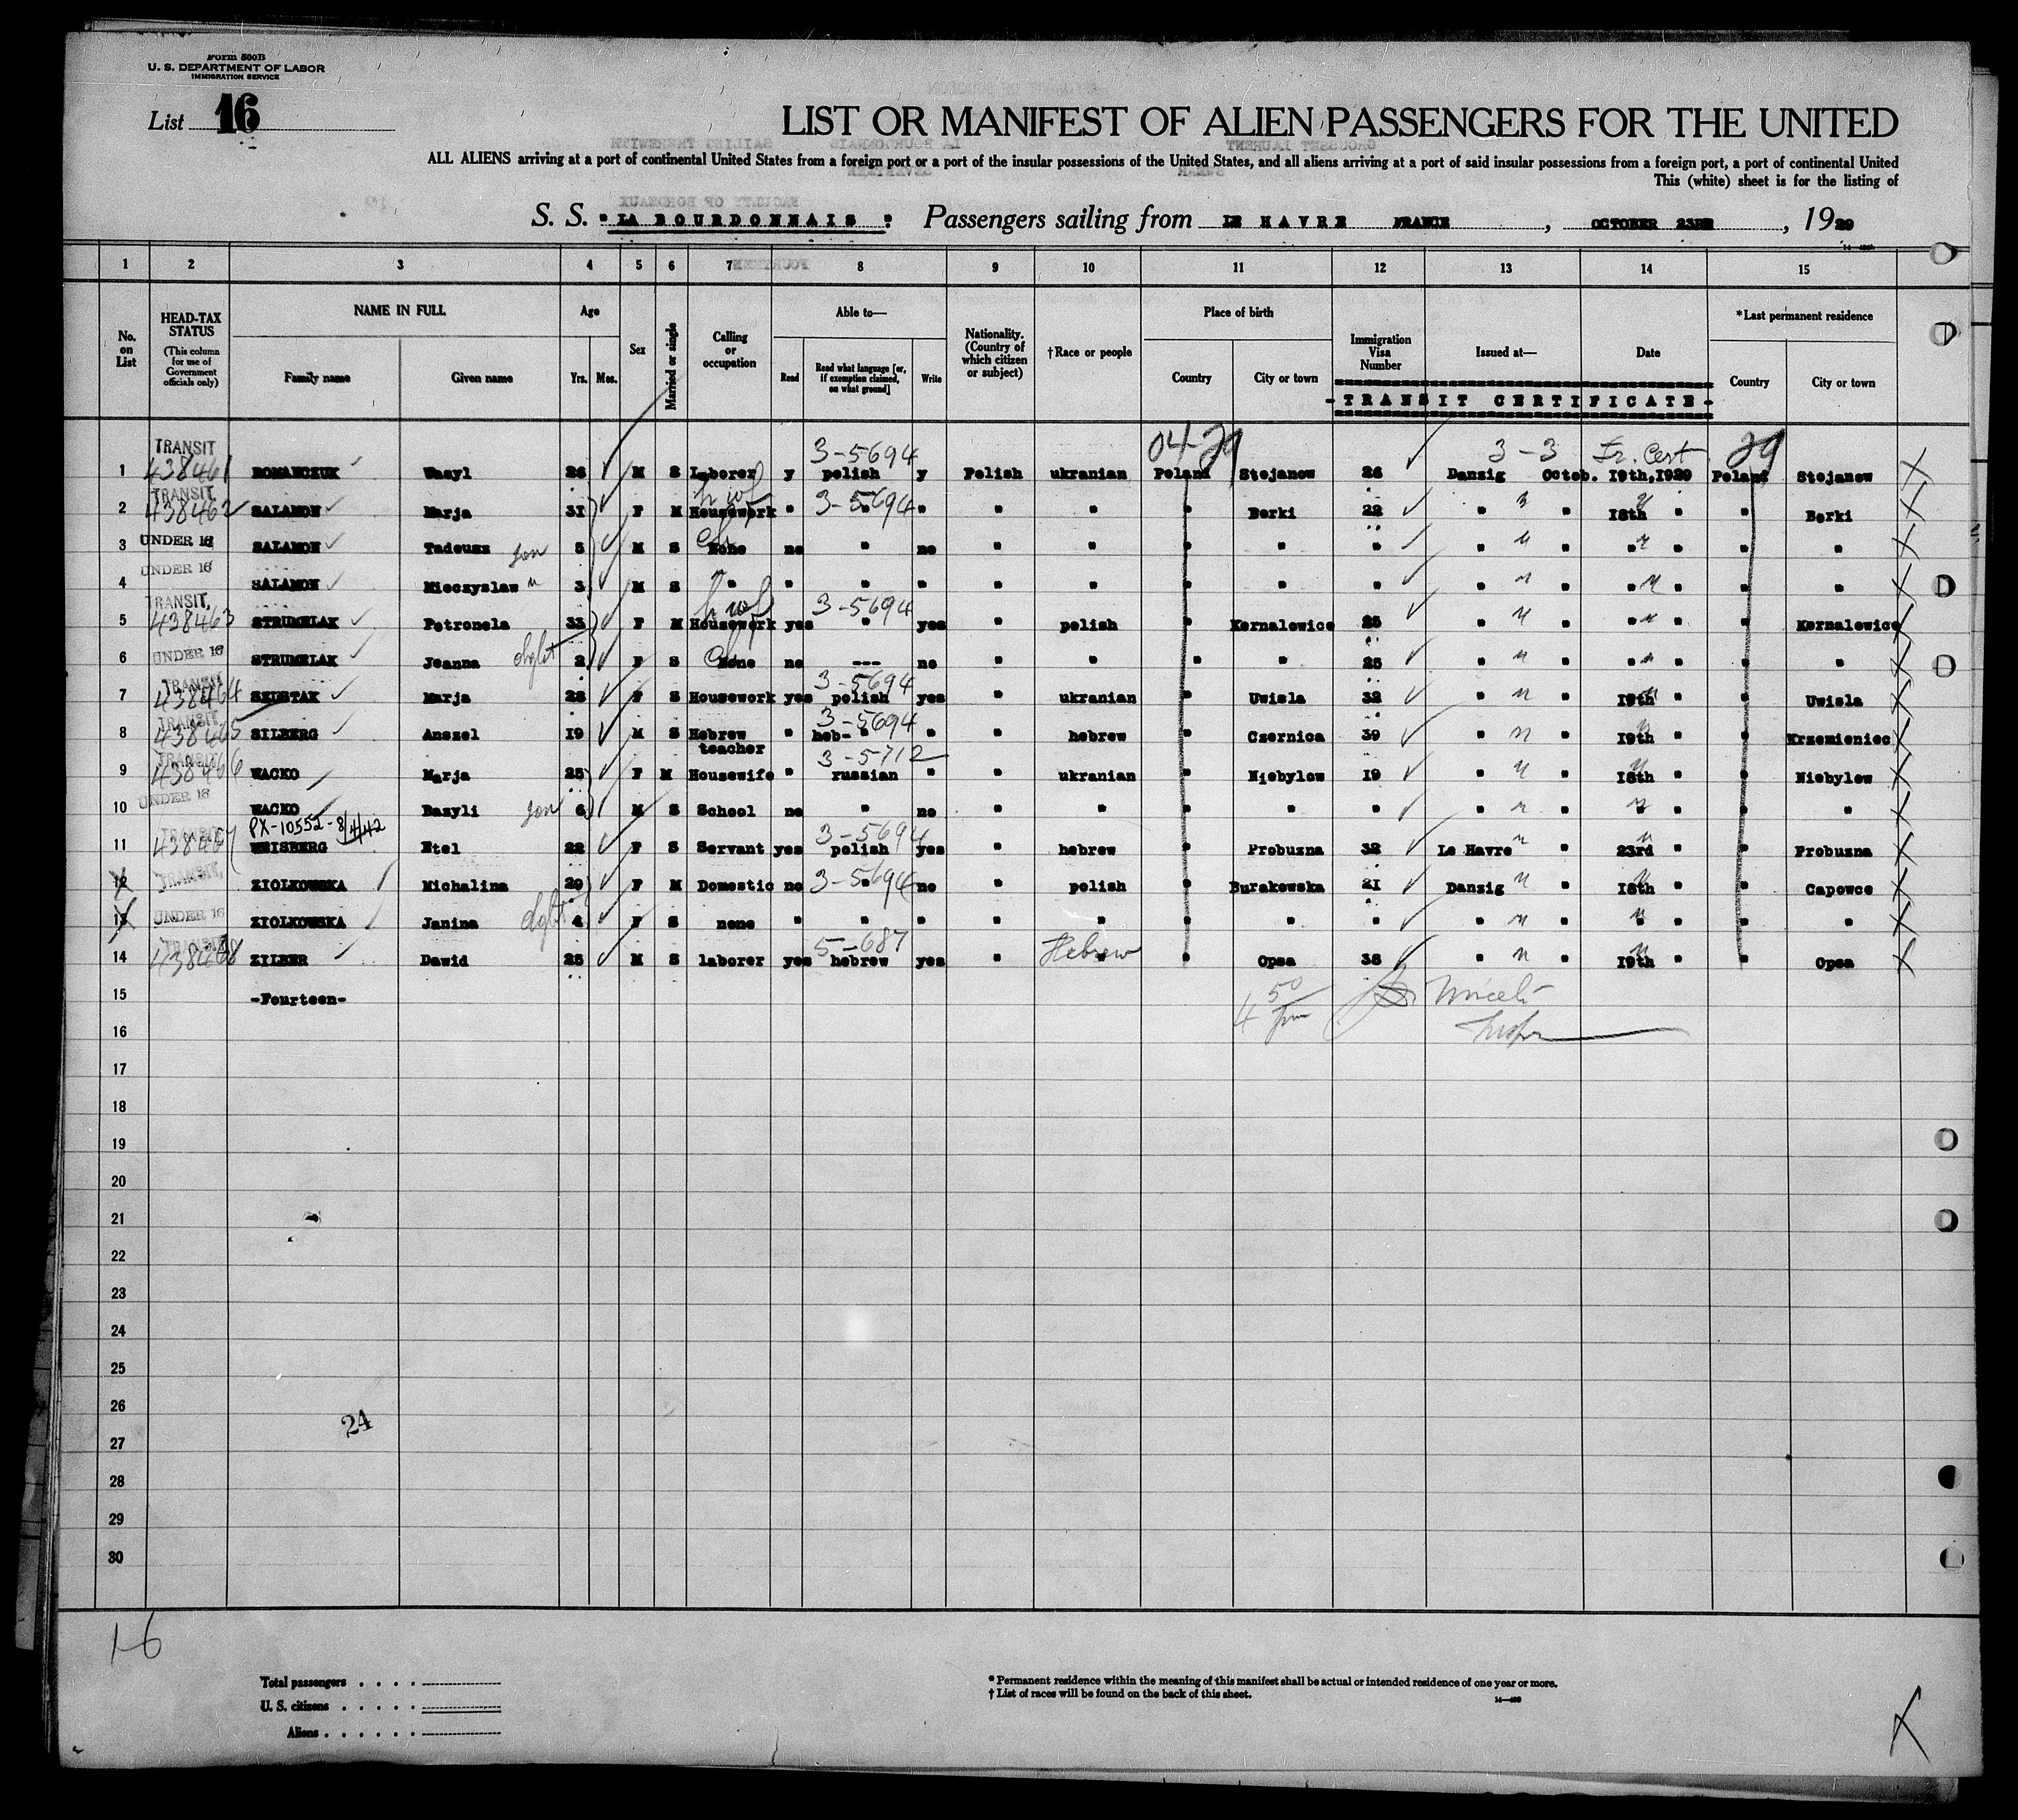 Form 500B
U. S. DEPARTMENT OF LABOR
IMMIGRATION SERVICE
List 16
LIST OR MANIFEST OF ALIEN PASSENGERS FOR THE UNITED
ALL ALIENS arriving at a port of continental United States from a foreign port or a port of the insular possessions of the United States, and all aliens arriving at a port of said insular possessions from a foreign port, a port of continental United
This (white) sheet is for the listing of
S. S. "LA BOURDONNAIS" Passengers sailing from LE HAVRE FRANCE, OCTOBER 23RD, 1929
1 2 3 4 5 6 7 8 9 10 11 12 13 14 15
No. on List HEAD-TAX STATUS (This column for use of Government officials only) NAME IN FULL Family name Given name Age Yrs. Mos. Sex Married or single Calling or occupation Able to— Read Read what language [or, if exemption claimed, on what ground] Write Nationality. (Country of which citizen or subject) †Race or people Place of birth Country City or town Immigration Visa Number Issued at— Date *Last permanent residence Country City or town
-TRANSIT CERTIFICATE-
TRANSIT 3-5694 04-29 3-3 Tr. Cert 29
1 438461 ROMANCZUK Wasyl 26 M S Laborer y polish y Polish ukranian Poland Stojanow 26 Danzig Octob. 19th,1929 Poland Stojanow
TRANSIT hwf
2 438462 SALAMON Marja 31 F M Housework " 3-5694 " " " " Borki 22 " " 18th " " Borki
3 UNDER 16 SALAMON Tadeusz son 5 M S None no " no " " " " " " " " " " "
UNDER 16
4 SALAMON Mieczyslaw " 3 M S " " " " " " " " " " " " " "
TRANSIT hwf 3-5694
5 438463 STRUMELAK Petronela 33 F M Housework yes " yes " polish " Kornalewice 25 " " " " " Kornalewice
6 UNDER 16 STRUMELAK Joanna dght 2 F S None no --- no " " " " 25 " " " " " "
TRANSIT 3-5694
7 438464 Marja 28 F S Housework yes polish yes " ukranian " Uwisla 32 " " 19th " " Uwisla
TRANSIT 3-5694
8 438465 SILBERG Anszel 19 M S Hebrew teacher " heb-" " " hebrew " Czernica 39 " " 19th " " Krzemieniec
TRANSIT 3-5712
9 438466 WACKO Marja 25 F M Housewife " russian " " ukranian " Niebylow 19 " " 18th " " Niebylow
UNDER 16
10 WACKO Bazyli son 6 M S School no " no " " " " " " " " " " "
PX-10552-8/4/42 3-5694
11 438467 WEISBERG Etel 22 F S Servant yes polish yes " hebrew " Probuzna 32 Le Havre " 23rd " " Probuzna
12 TRANSIT, ZIOLKOWSKA Michalina 29 F M Domestic no 3-5694 no " polish " Burakowska 21 Danzig " 18th " " Capowce
13 UNDER 16 ZIOLKOWSKA Janina dght 4 F S none " " " " " " " " " " " " " "
TRANSIT 5-687
14 438468 ZILBER Dawid 25 M S laborer yes hebrew yes " Hebrew " Opsa 38 " " 19th " " Opsa
15 -Fourteen- 4 50 pm
16 Inspr
17
18
19
20
21
22
23
24
25
26
24
27
28
29
30
16
Total passengers
U. S. citizens
Aliens
* Permanent residence within the meaning of this manifest shall be actual or intended residence of one year or more.
† List of races will be found on the back of this sheet.